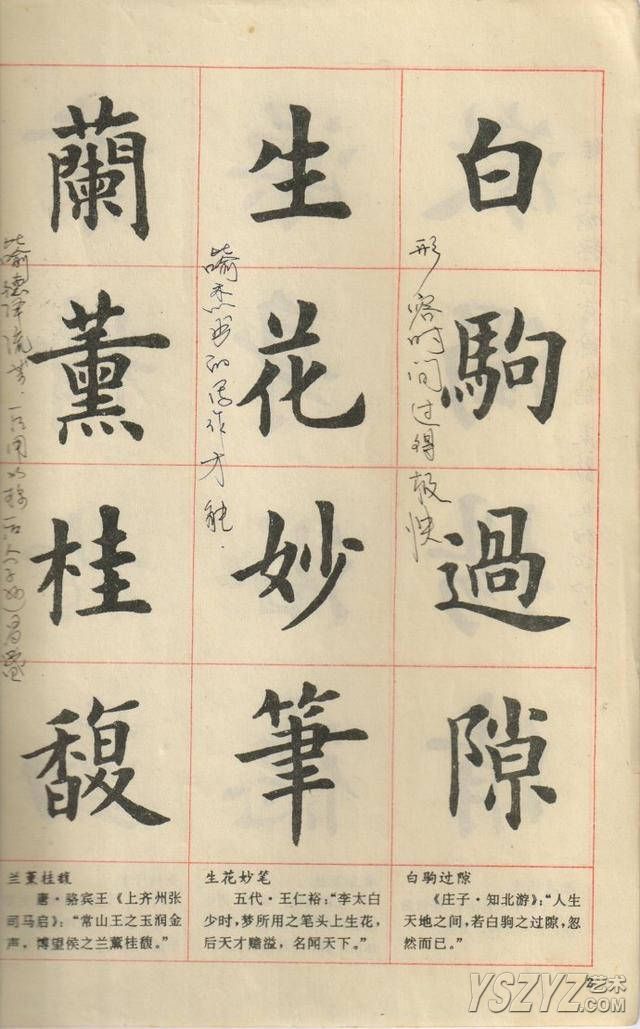 白駒過隙
形容时间过得极快
生花妙筆
喻杰出的写作才能.
蘭薰桂馥
喻德泽流芳.
白驹过隙
《庄子·知北游》：“人生
天地之间，若白驹之过隙，忽
然而已。”
生花妙笔
五代·王仁裕：“李太白
少时，梦所用之笔头上生花，
后天才赡溢，名闻天下。”
兰薰桂馥
唐·骆宾王《上齐州张
司马启》：“常山王之玉润金
声，博望侯之兰薰桂馥。”
YSZYZ艺术
.COM